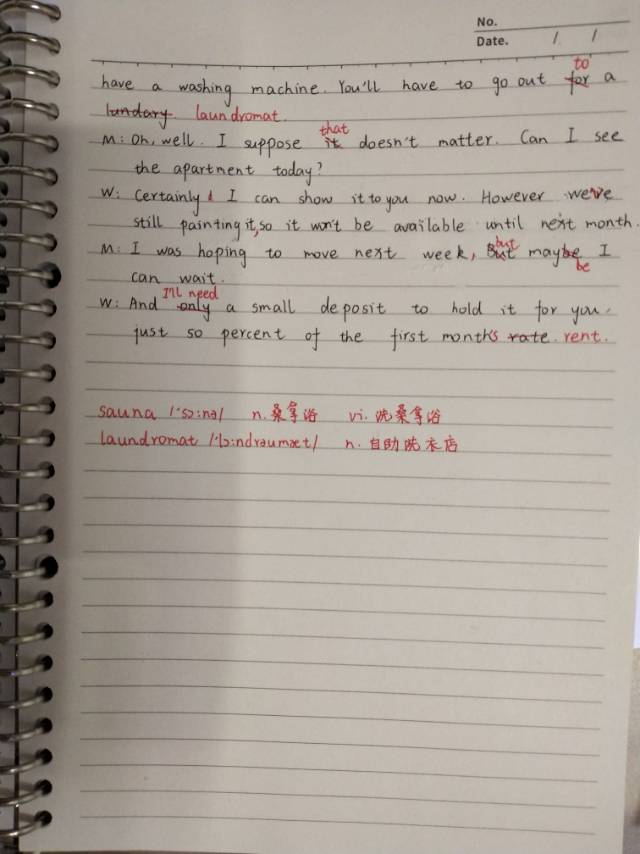 No.
Date. / /
to
have a washing machine. You'll have to go out for a
lundary laundromat.
that
M: Oh, well. I suppose it doesn't matter. Can I see
the apartnent today?
W: Certainly! I can show it to you now. However we're
still painting it, so it won't be available until next month.
but
M: I was hoping to move next week, But maybe I
be
can wait.
I'll need
W: And only a small deposit to hold it for you,
just so percent of the first month's rate. rent.
sauna /'sɔ:nə/ n. 桑拿浴 vi. 洗桑拿浴
laundromat /'lɔ:ndrəumæt/ n. 自助洗衣店